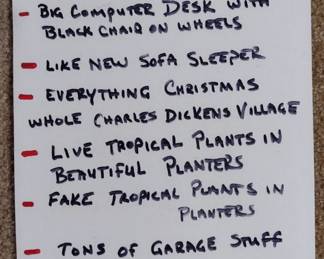 - BIG COMPUTER DESK WITH
BLACK CHAIR ON WHEELS
- LIKE NEW SOFA SLEEPER
- EVERYTHING CHRISTMAS
WHOLE CHARLES DICKENS VILLAGE
- LIVE TROPICAL PLANTS IN
BEAUTIFUL PLANTERS
- FAKE TROPICAL PLANTS IN
PLANTERS
- TONS OF GARAGE STUFF